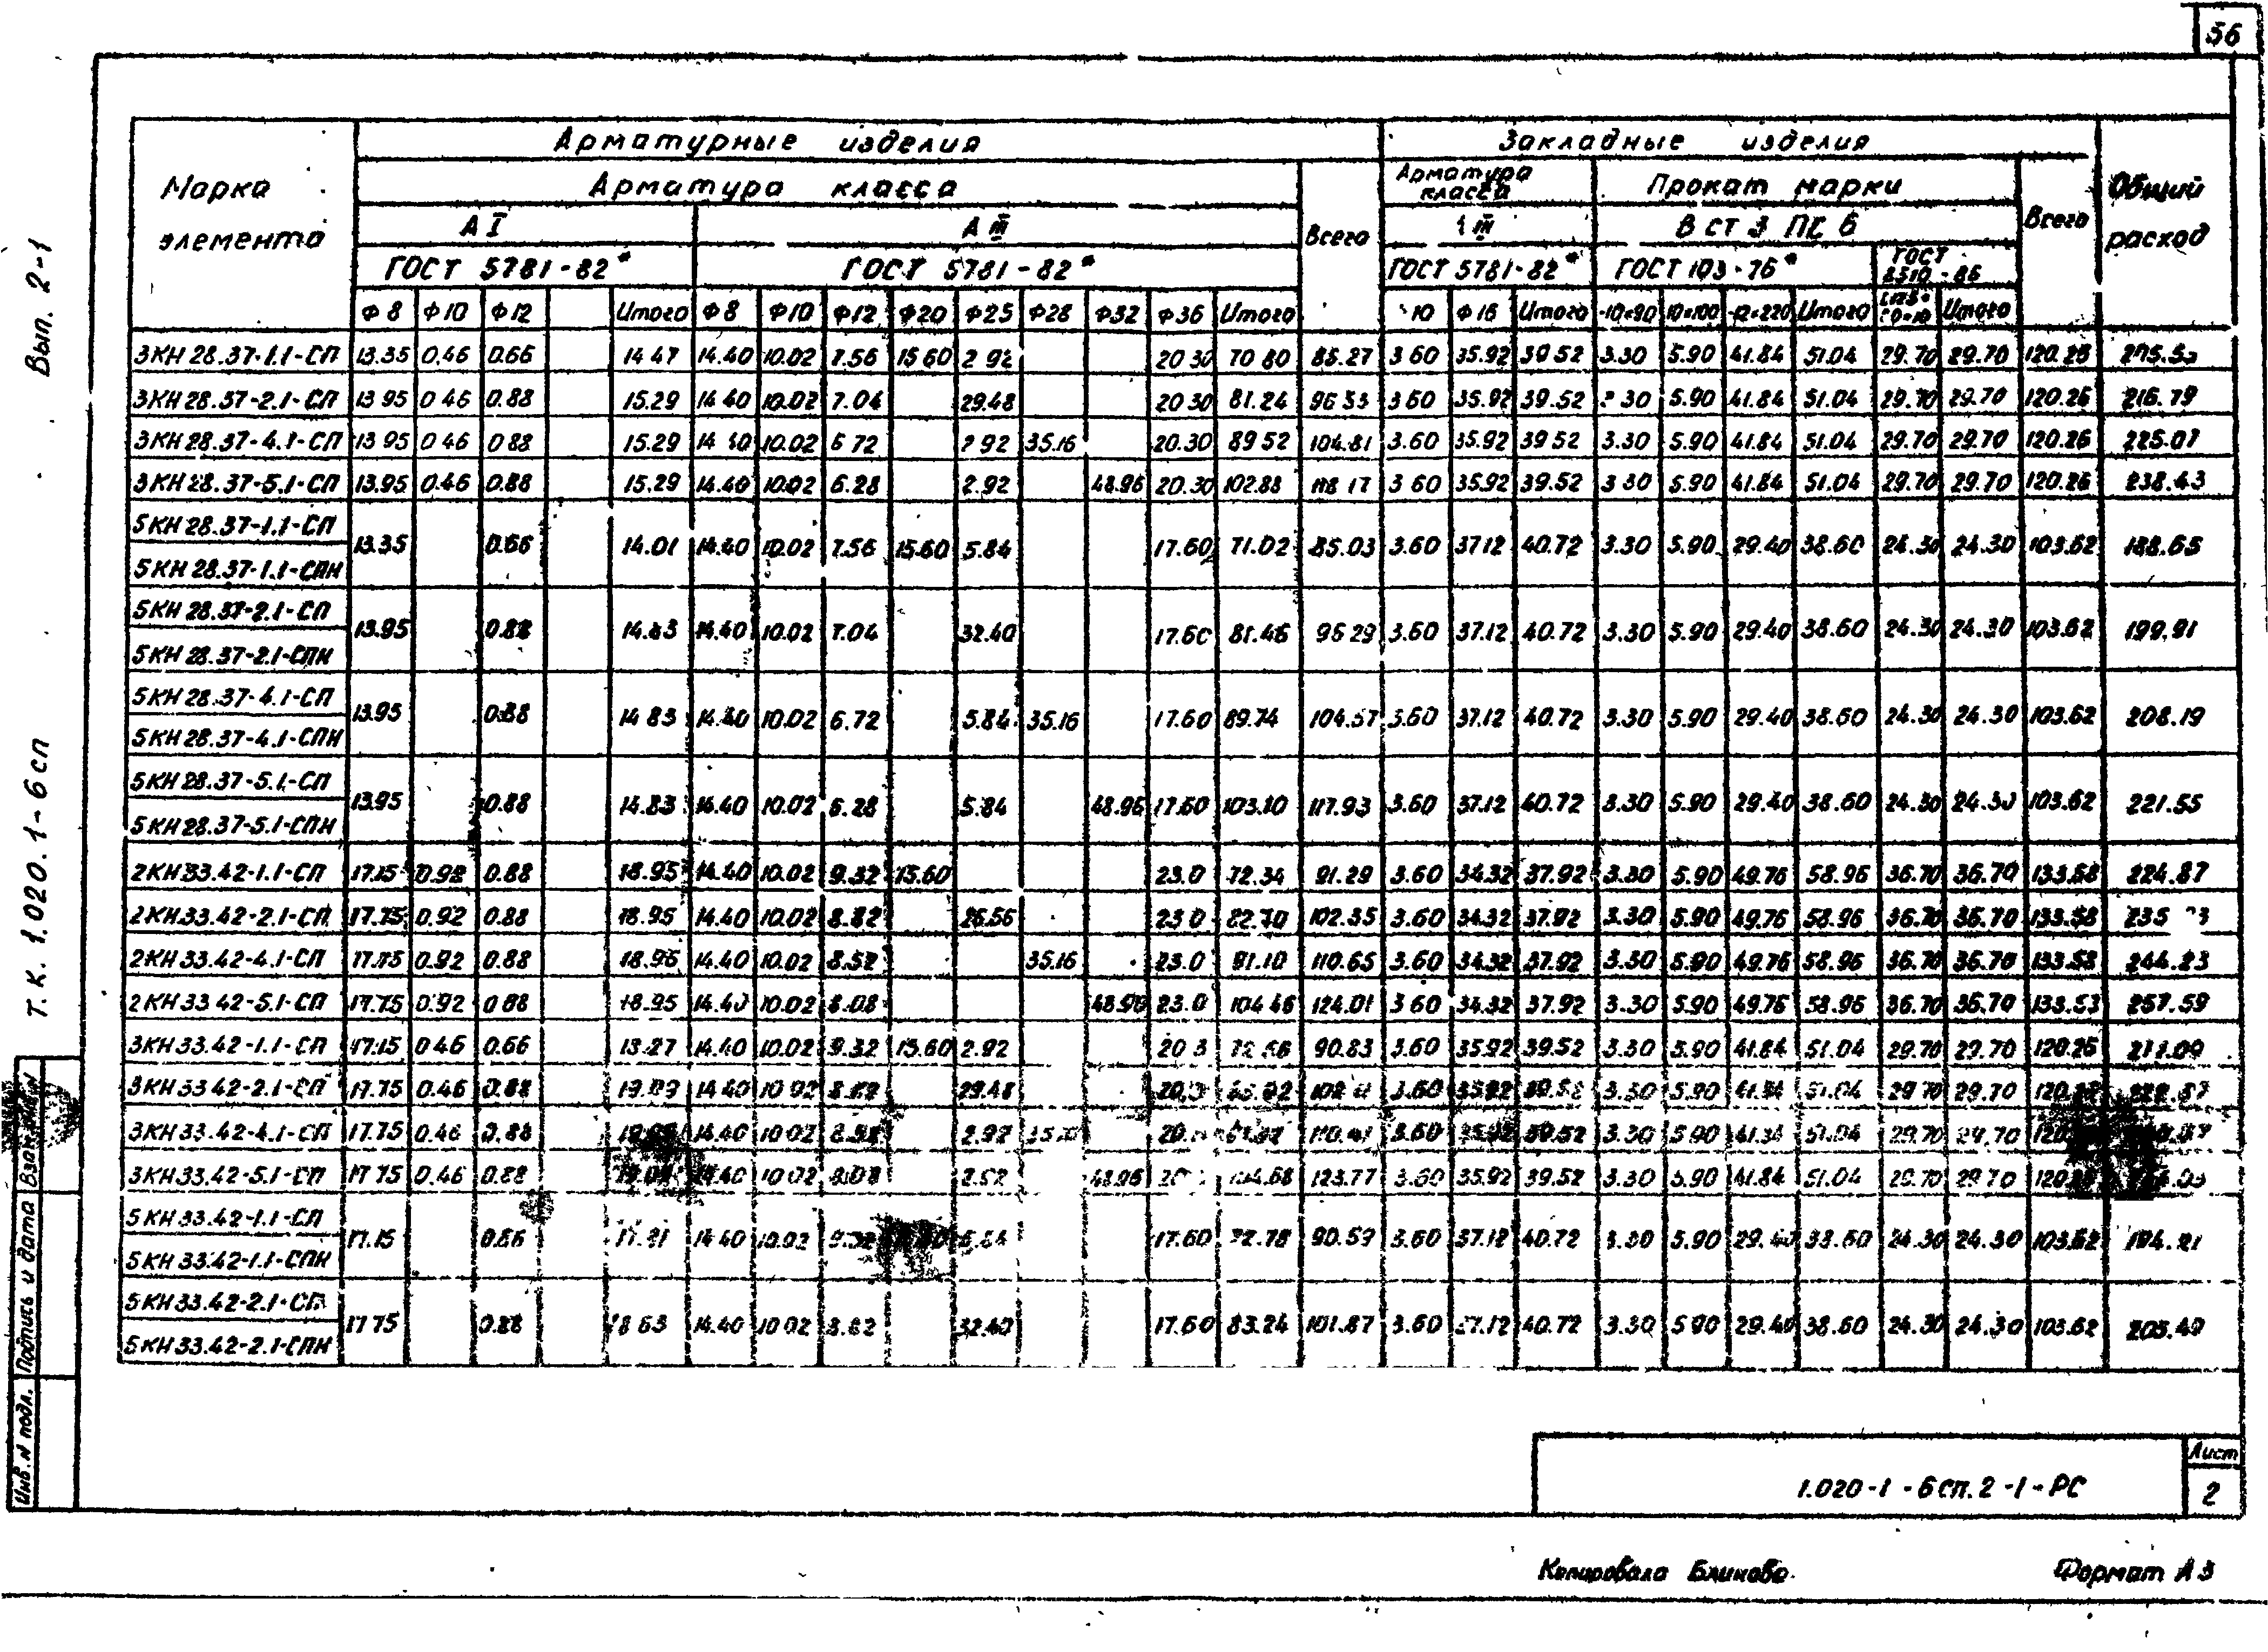 56
Вып. 2-1
Т.К. 1.020.1-6сп
Взам. инв.
Подпись и дата
Инв. N подл.
Марка элемента
Арматурные изделия
Закладные изделия
Общий расход
Арматура класса
Всего
Арматура класса
Прокат марки
Всего
А I
А III
III
В Ст 3 ПС 6
ГОСТ 5781-82*
ГОСТ 5781-82*
ГОСТ 5781-82*
ГОСТ 103-76*
ГОСТ 8510-86
Ф8 Ф10 Ф12 Итого Ф8 Ф10 Ф12 Ф20 Ф25 Ф28 Ф32 Ф36 Итого 10 Ф16 Итого -10×90 10×100 -12×220 Итого Итого
3КН 28.37-1.1-СП 13.35 0.46 0.66 14.47 14.40 10.02 7.56 15.60 2.92 20.30 70.80 85.27 3.60 35.92 39.52 3.30 5.90 41.84 51.04 29.70 29.70 120.26
3КН 28.37-2.1-СП 13.95 0.46 0.88 15.29 14.40 10.02 7.04 29.48 20.30 81.24 96.53 3.60 35.92 39.52 3.30 5.90 41.84 51.04 29.70 29.70 120.26 216.79
3КН 28.37-4.1-СП 13.95 0.46 0.88 15.29 14.40 10.02 6.72 2.92 35.16 20.30 89.52 104.81 3.60 35.92 39.52 3.30 5.90 41.84 51.04 29.70 29.70 120.26 225.07
3КН 28.37-5.1-СП 13.95 0.46 0.88 15.29 14.40 10.02 6.28 2.92 48.96 20.30 102.88 118.17 3.60 35.92 39.52 3.30 5.90 41.84 51.04 29.70 29.70 120.26 238.43
5КН 28.37-1.1-СП
5КН 28.37-1.1-СПН
13.35 0.66 14.01 14.40 10.02 7.56 15.60 5.84 17.60 71.02 85.03 3.60 37.12 40.72 3.30 5.90 29.40 38.60 24.30 24.30 103.62 188.65
5КН 28.37-2.1-СП
5КН 28.37-2.1-СПН
13.95 0.88 14.83 14.40 10.02 7.04 32.40 17.60 81.46 96.29 3.60 37.12 40.72 3.30 5.90 29.40 38.60 24.30 24.30 103.62 199.91
5КН 28.37-4.1-СП
5КН 28.37-4.1-СПН
13.95 0.88 14.83 14.40 10.02 6.72 5.84 35.16 17.60 89.74 104.57 3.60 37.12 40.72 3.30 5.90 29.40 38.60 24.30 24.30 103.62 208.19
5КН 28.37-5.1-СП
5КН 28.37-5.1-СПН
13.95 0.88 14.83 14.40 10.02 6.28 5.84 48.96 17.60 103.10 117.93 3.60 37.12 40.72 3.30 5.90 29.40 38.60 24.30 24.30 103.62 221.55
2КН 33.42-1.1-СП 17.15 0.92 0.88 18.95 14.40 10.02 9.32 15.60 23.0 72.34 91.29 3.60 34.32 37.92 3.30 5.90 49.76 58.96 36.70 36.70 133.58 224.87
2КН 33.42-2.1-СП 17.75 0.92 0.88 18.95 14.40 10.02 8.82 26.56 23.0 82.70 102.35 3.60 34.32 37.92 3.30 5.90 49.76 58.96 36.70 36.70 133.58
2КН 33.42-4.1-СП 17.75 0.92 0.88 18.95 14.40 10.02 8.52 35.16 23.0 91.10 110.65 3.60 34.32 37.92 3.30 5.90 49.76 58.96 36.70 36.70 133.58 244.23
2КН 33.42-5.1-СП 17.75 0.92 0.88 18.95 14.40 10.02 8.08 48.96 23.0 104.46 124.01 3.60 34.32 37.92 3.30 5.90 49.76 58.96 36.70 36.70 133.53 257.59
3КН 33.42-1.1-СП 17.15 0.46 0.66 14.40 10.02 9.32 15.60 2.92 20.3 72.56 90.83 3.60 35.92 39.52 3.30 5.90 41.84 51.04 29.70 29.70 120.26 211.09
3КН 33.42-2.1-СП 17.75 0.46 0.88 19.09 14.40 29.48 3.60 35.92 3.30 5.90 51.04 29.70 29.70
3КН 33.42-4.1-СП 17.75 0.46 0.88 14.40 10.02 8.52 2.92 3.60 39.52 3.30 5.90 51.04 29.70 29.70
3КН 33.42-5.1-СП 17.75 0.46 0.88 14.40 10.02 8.08 48.96 104.68 123.77 3.60 35.92 39.52 3.30 5.90 41.84 51.04 29.70 29.70
5КН 33.42-1.1-СП
5КН 33.42-1.1-СПН
17.15 0.66 14.40 10.02 5.84 17.60 72.78 90.59 3.60 37.12 40.72 3.30 5.90 29.40 38.60 24.30 24.30 103.62 194.21
5КН 33.42-2.1-СП
5КН 33.42-2.1-СПН
17.75 0.88 18.63 14.40 10.02 8.82 32.40 17.60 83.24 101.87 3.60 37.12 40.72 3.30 5.90 29.40 38.60 24.30 24.30 103.62 205.49
1.020-1-6сп.2-1-РС
Лист
2
Копировала Блинова
Формат А3